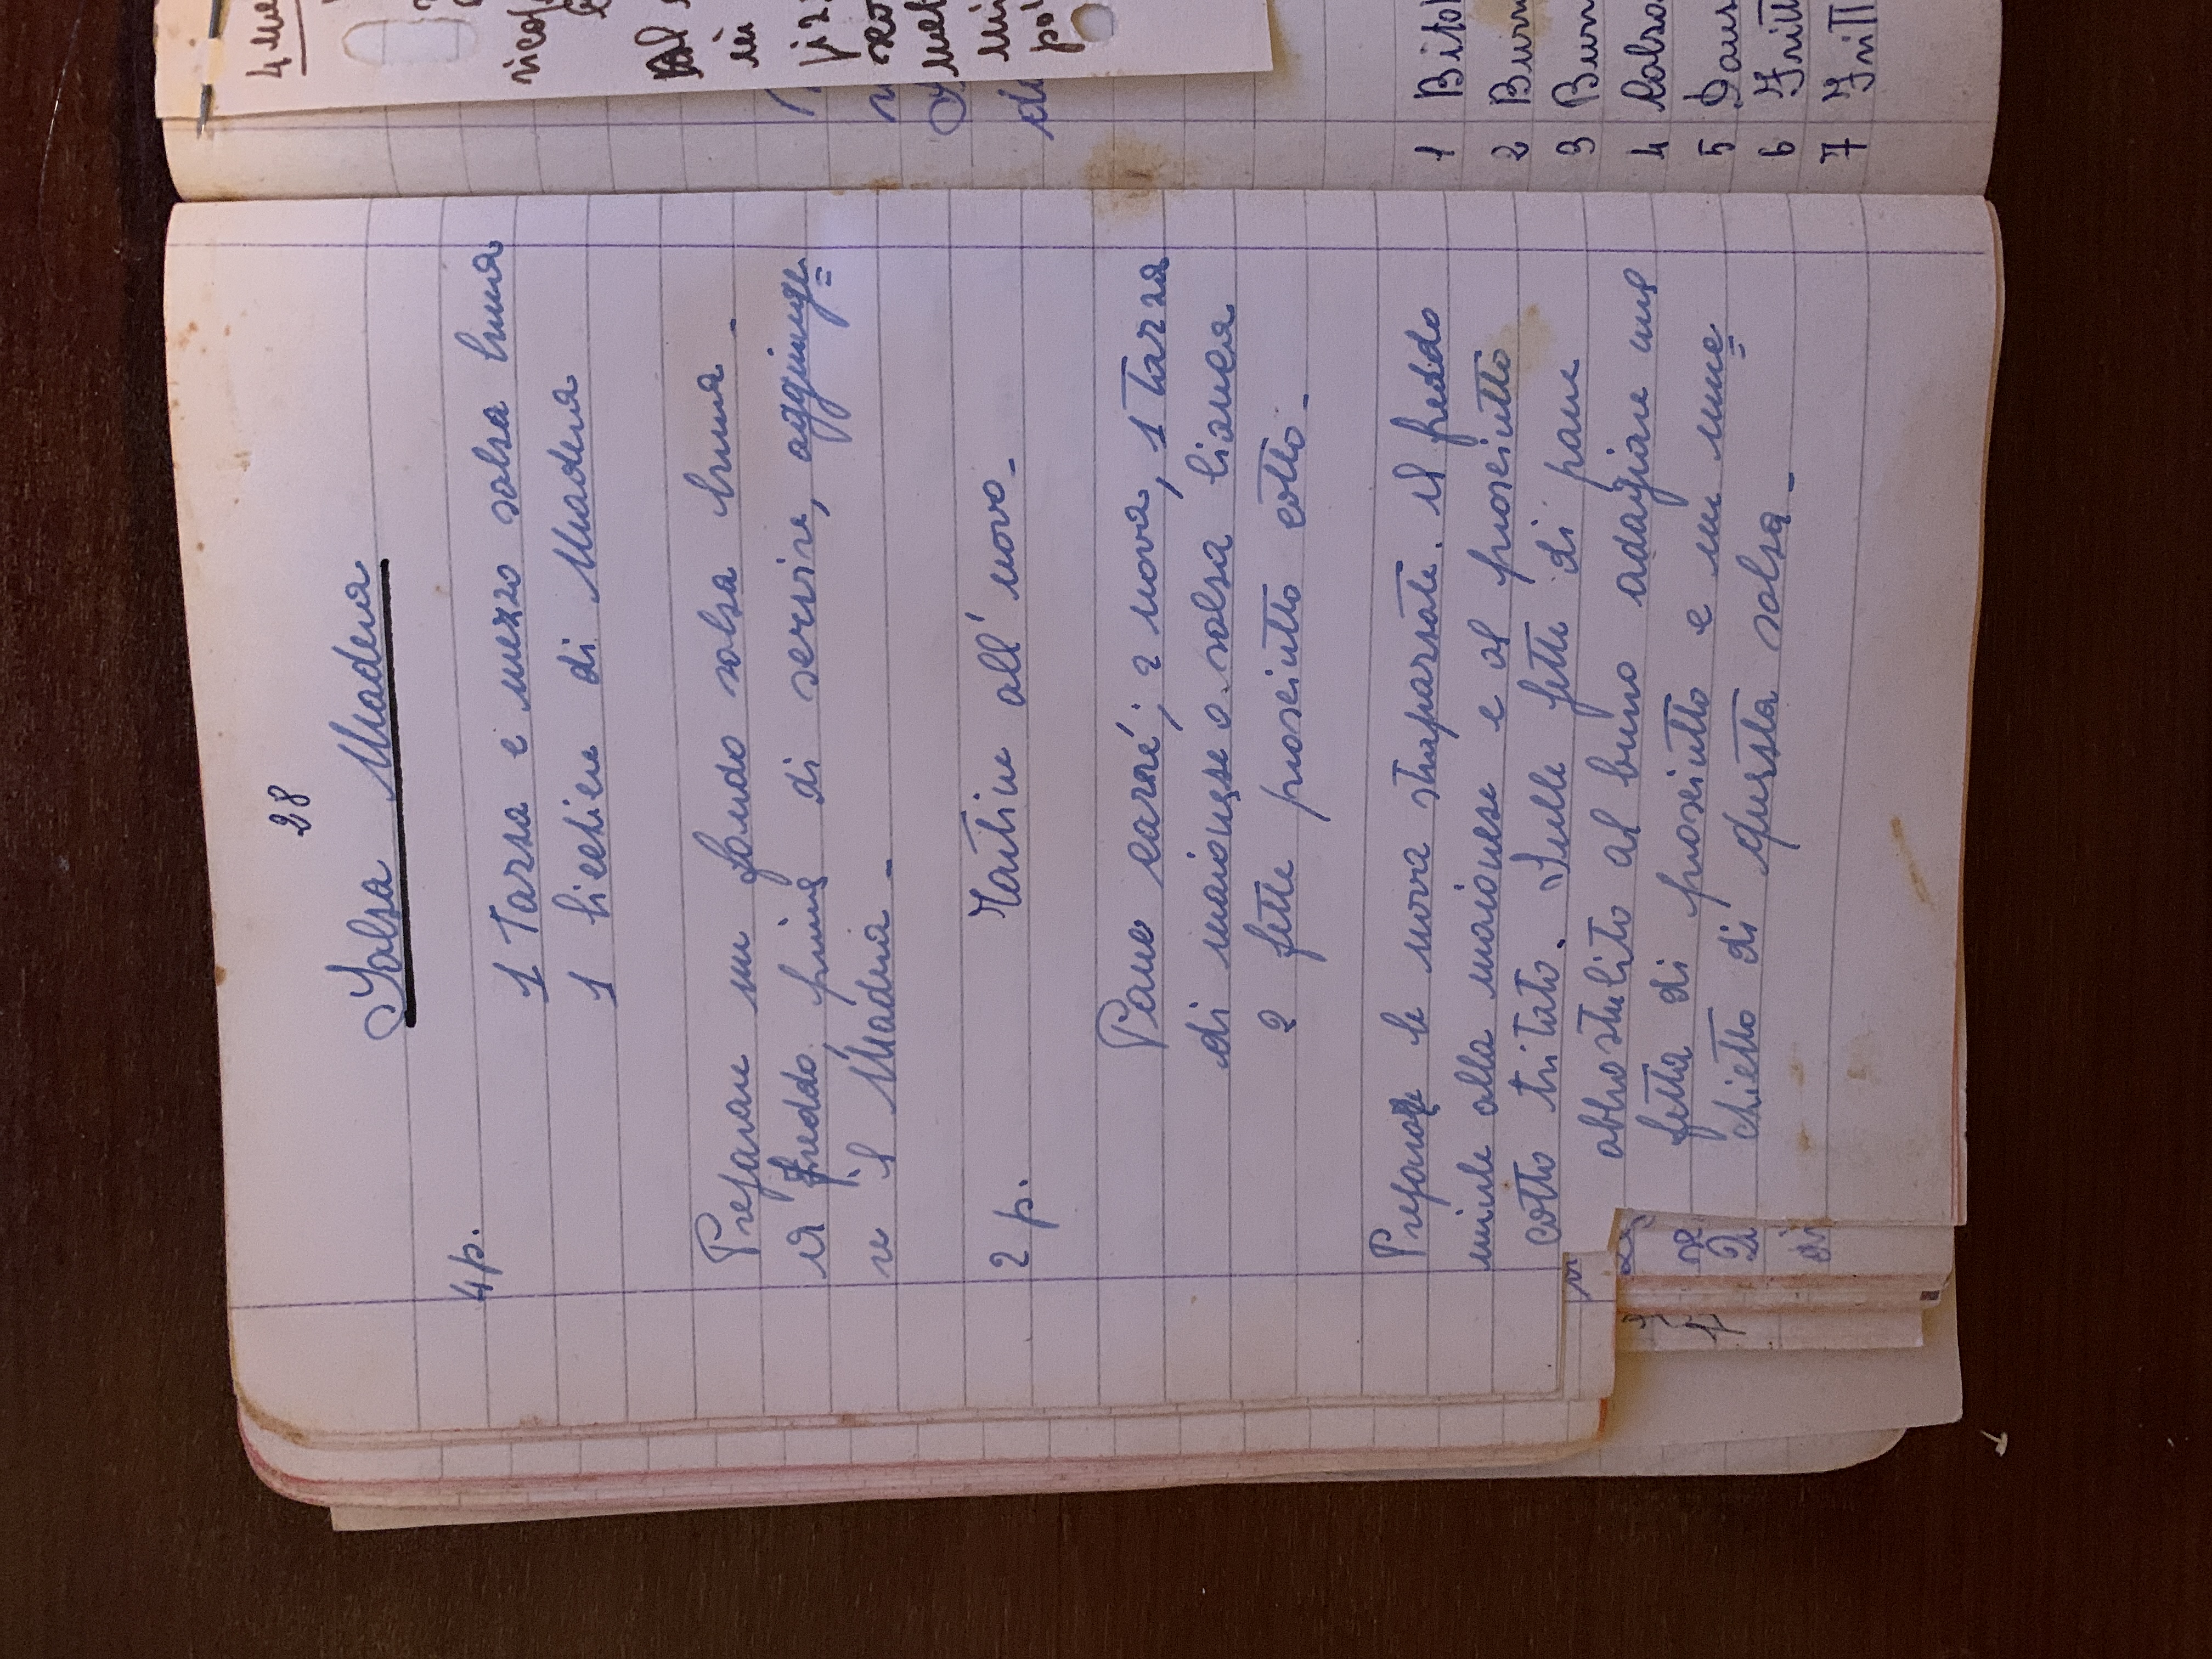 28
Salsa Madera
4 p.
1 Tazza e mezzo salsa bruna
1 bicchiere di Madera
Preparare un fondo salsa bruna -
A freddo, prima di servire, aggiunge=
re il Madera -
2 p. Tartine all'uova -
Pane carré; 2 uova, 1 tazza
di maionese o salsa bianca
2 fette prosciutto cotto -
Preparare le uova strapazzate. A freddo
unirle alla maionese e al prosciutto
cotto tritato. Sulle fette di pane
abbrustulito al burro adagiare una
fetta di prosciutto e un muc=
chietto di questa salsa -
4
1 Bitok
2 Burr
3 Burr
4
5
6 Fritt
7 Fritt